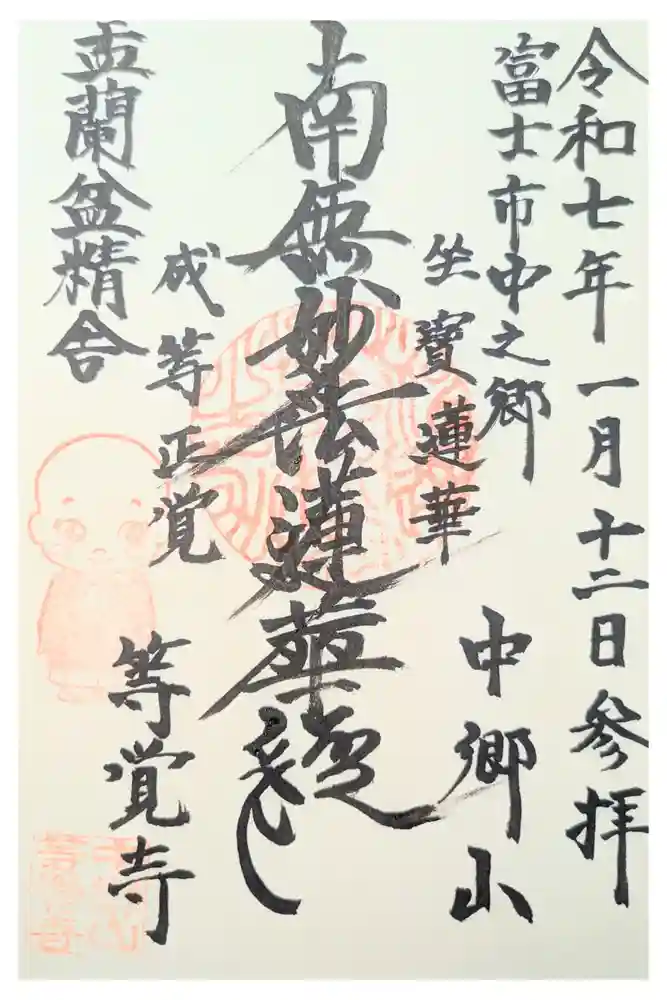 令和七年一月十二日参拝
富士市中之郷
坐寶蓮華
中郷山
南無妙法蓮華経
成等正覚
等覚寺
盂蘭盆精舎